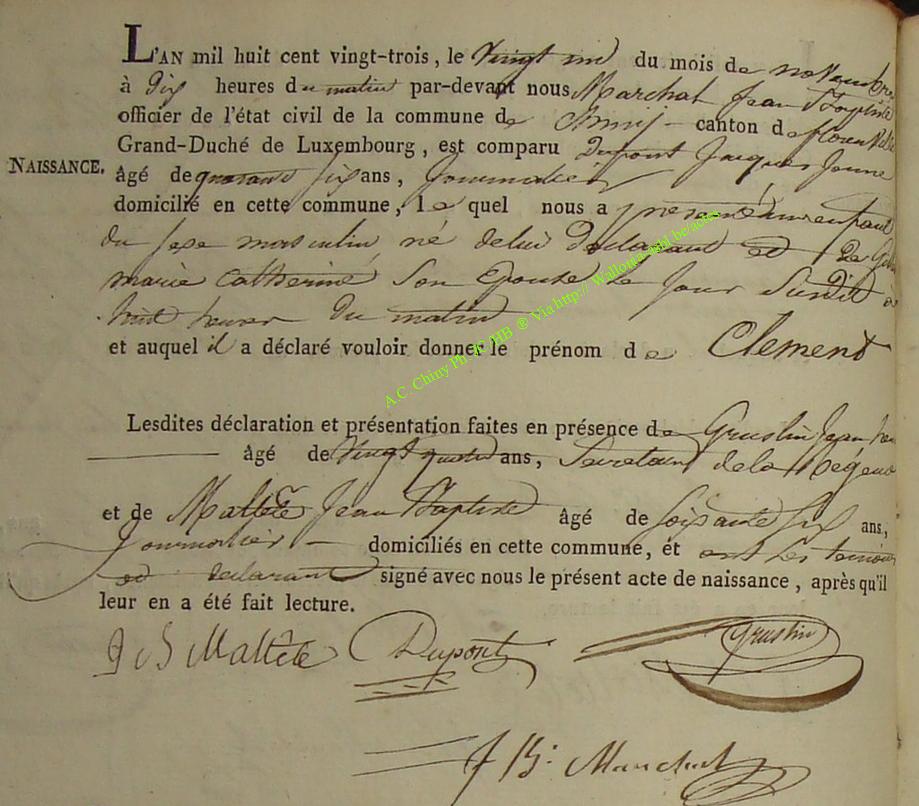 L'AN mil huit cent vingt-trois, le Vingt un du mois de novembre
à Dix heures du matin par-devant nous Marchal Jean Baptiste
officier de l'état civil de la commune de Chiny canton de florenville
Grand-Duché de Luxembourg, est comparu Dupont Jacques Jeune
NAISSANCE.
âgé de quarant six ans, Journalier
domicilié en cette commune, le quel nous a presenté un enfant
du sexe masculin né de lui Declarant et De
marie Catherine Son Epouse le Jour Susdit à
huit heures Du matin
et auquel il a déclaré vouloir donner le prénom de Clement
Lesdites déclaration et présentation faites en présence de Gruslin Jean
âgé de Vingt quatre ans, Secretaire de la Regence
et de Malfète Jean Baptiste âgé de Soixante Six ans,
Journalier domiciliés en cette commune, et ont les temoins
et declarant signé avec nous le présent acte de naissance, après qu'il
leur en a été fait lecture.
J B Malfète Dupont Gruslin
J B. Marchal
A.C. Chiny Ph. JC HB ® Via http:// Wallonia-asbl.be/actes